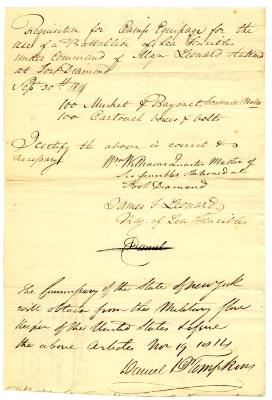 Requisition for Camp Equipage for the
use of a Battallion of Sea Fencibles
under Command of Major Leonard Stationed
at Fort Diamond
Sept 30th 1814
100 Musket & Bayonet
100 Cartouch boxes & belts
I certify the above is correct &
necessary
Wm Williams Quarter Master of
Sea fencibles stationed at
Fort Diamond
James T Leonard
Maj. of Sea Fencibles
Daniel
The Commissary of the State of New York
will obtain from the Military Store
Keeper of the United States & issue
the above Articles Nov 19 1814
Daniel D Tompkins